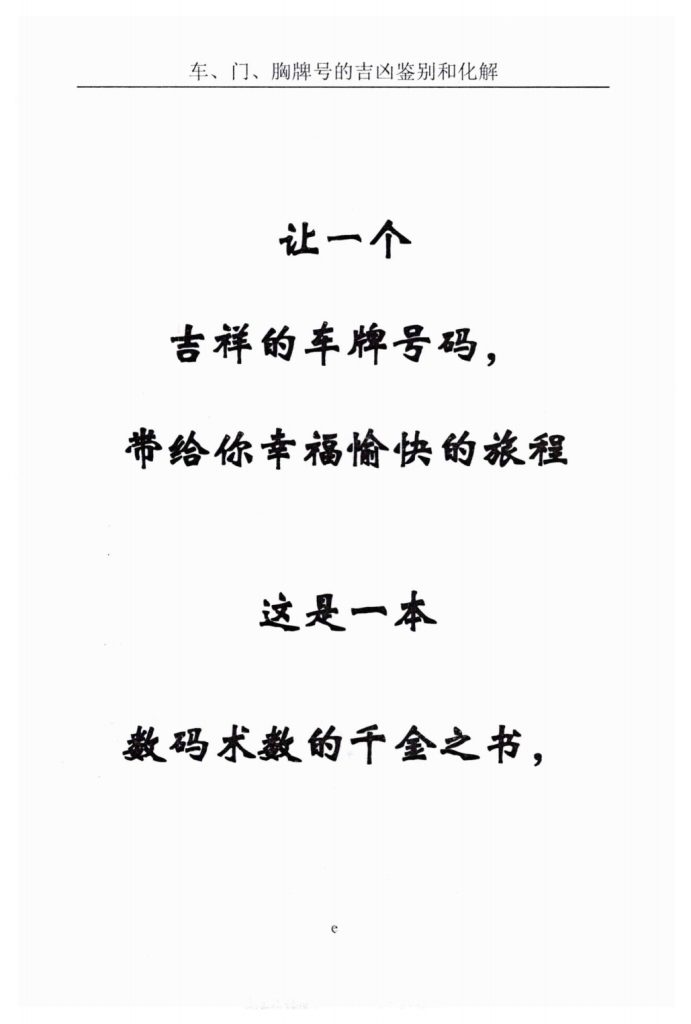 车、门、胸牌号的吉凶鉴别和化解
让一个
吉祥的车牌号码，
带给你幸福愉快的旅程
这是一本
数码术数的千金之书，
e